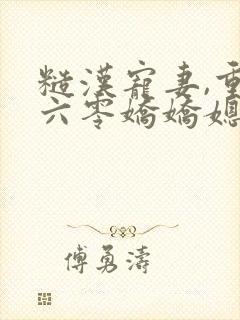 糙漢寵妻,重
六零嬌嬌媳
傅勇濤